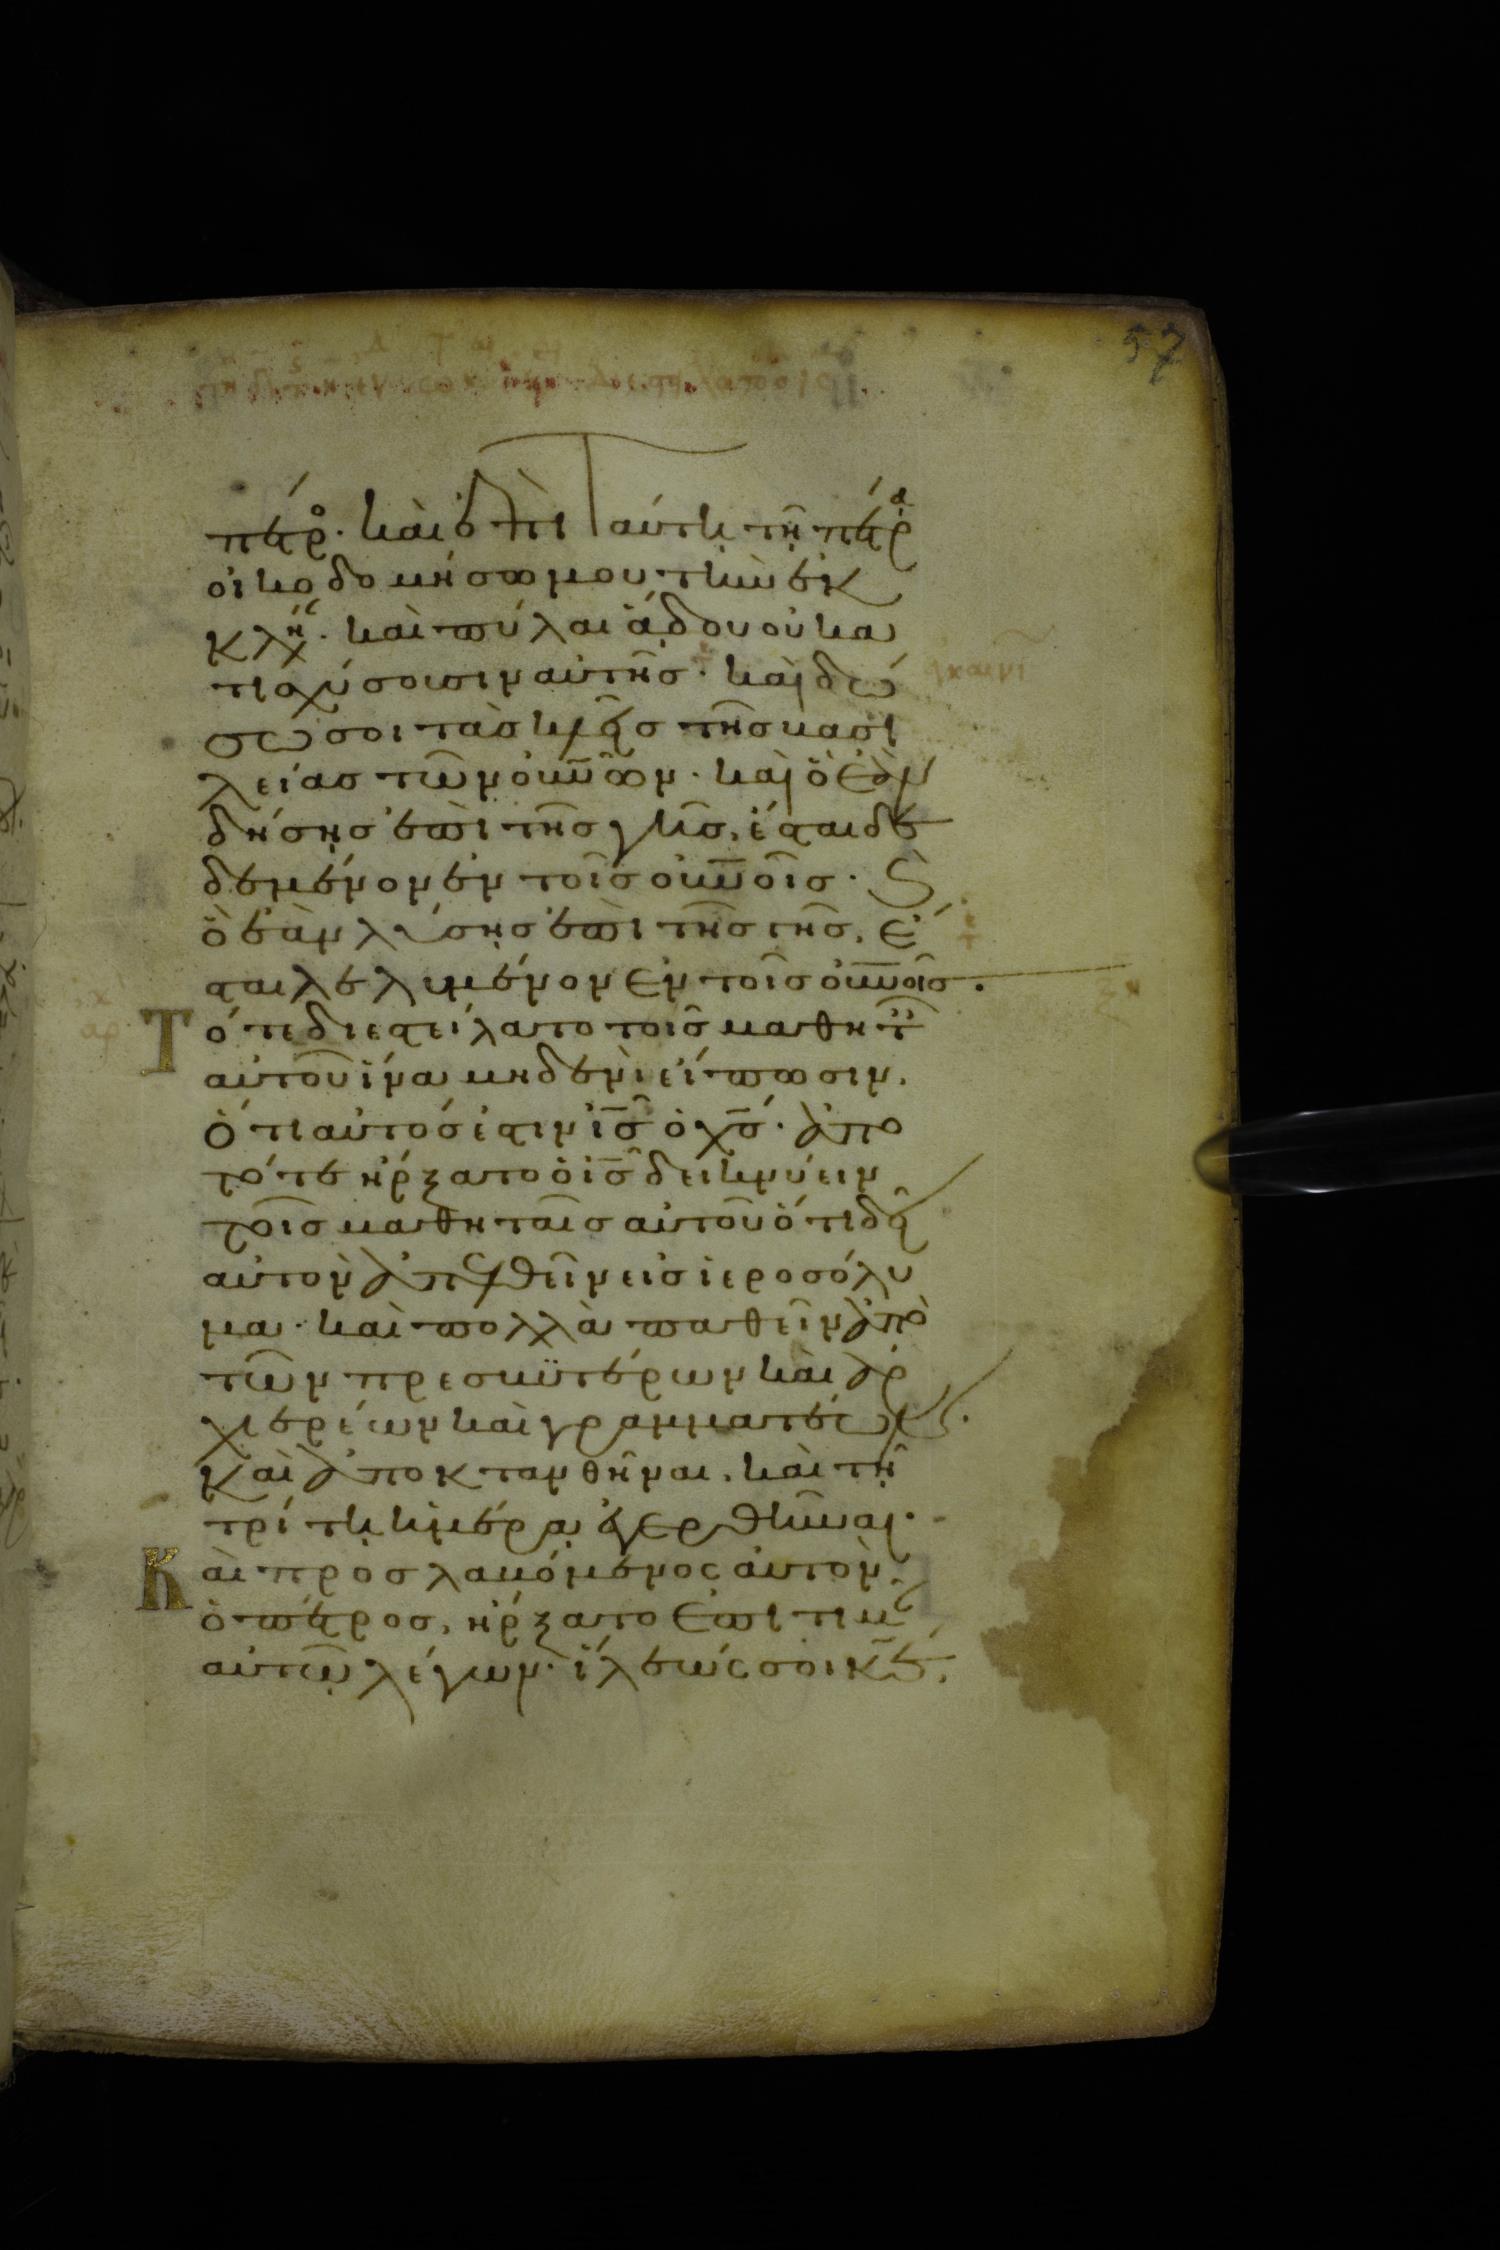 57
πέτρο· καὶ ἐπὶ ταύτη τῆ πέτρα
οἰκοδομήσω μου τὴν ἐκ
κλη· καὶ πύλαι ἅδου οὐ κα
τισχύσουσιν αὐτῆς· καὶ δώ
σω σοι τὰς κλεῖς τῆς βασι
λείας τῶν οὐνῶν· καὶ ὃ ἐὰν
δήσης ἐπὶ τῆς γῆς, ἔσται δε
δεμένον ἐν τοῖς οὐνοῖς· κ
ὃ ἐὰν λύσης ἐπὶ τῆς γῆς, ἔ
σται λελυμένον ἐν τοῖς οὐνοῖς.
Τότε διεστείλατο τοῖς μαθητ
αὐτοῦ ἵνα μηδενὶ εἴπωσιν,
ὅτι αὐτός ἐστιν ις ὁ χς· ἀπο
τότε ἤρξατο ὁ ις δεικνύειν
τοῖς μαθηταῖς αὐτοῦ ὅτι δεῖ
αὐτὸν ἀπελθεῖν εἰς ἱεροσόλυ
μα· καὶ πολλὰ παθεῖν ἀπὸ
τῶν πρεσβϋτέρων καὶ ἀρ
χιερέων καὶ γραμματέων.
καὶ ἀποκτανθῆναι, καὶ τῆ
τρίτη ἡμέρα ἐγερθῆναι·
Καὶ προσλαβόμενος αὐτὸν
ὁ πέτρος, ἤρξατο ἐπιτιμ
αὐτῶ λέγων· ἵλεώς σοι κε,